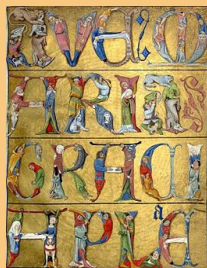 AVE: M
ARIA
GRACI
A PL